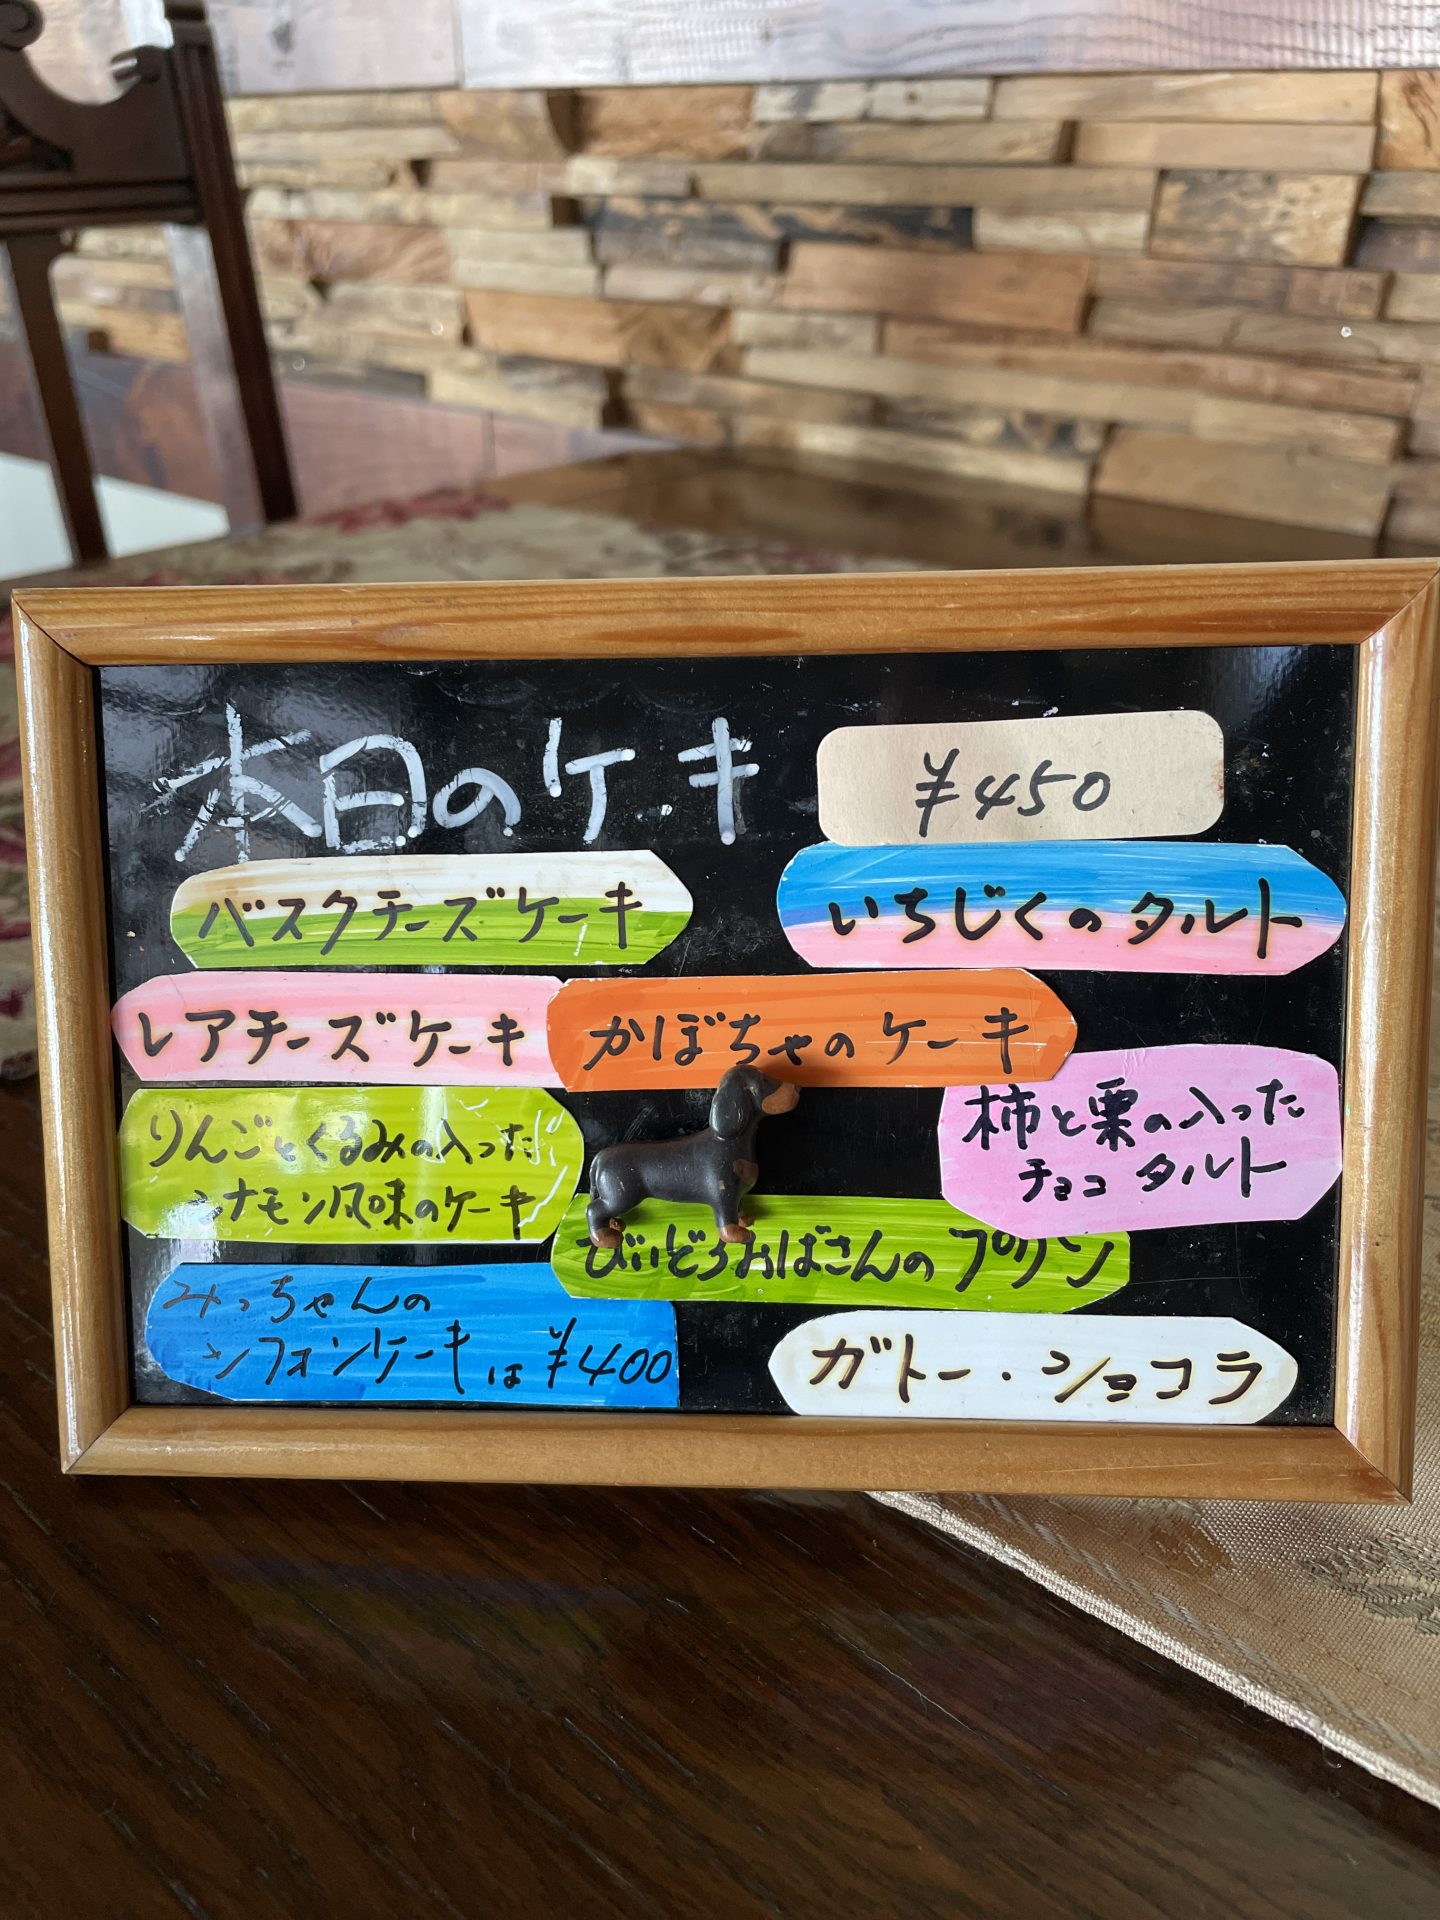 本日のケーキ
¥450
バスクチーズケーキ
いちじくのタルト
レアチーズケーキ
かぼちゃのケーキ
りんごとくるみの入った
シナモン風味のケーキ
柿と栗の入った
チョコタルト
びいどろおばさんのプリン
みっちゃんの
シフォンケーキは¥400
ガトー・ショコラ